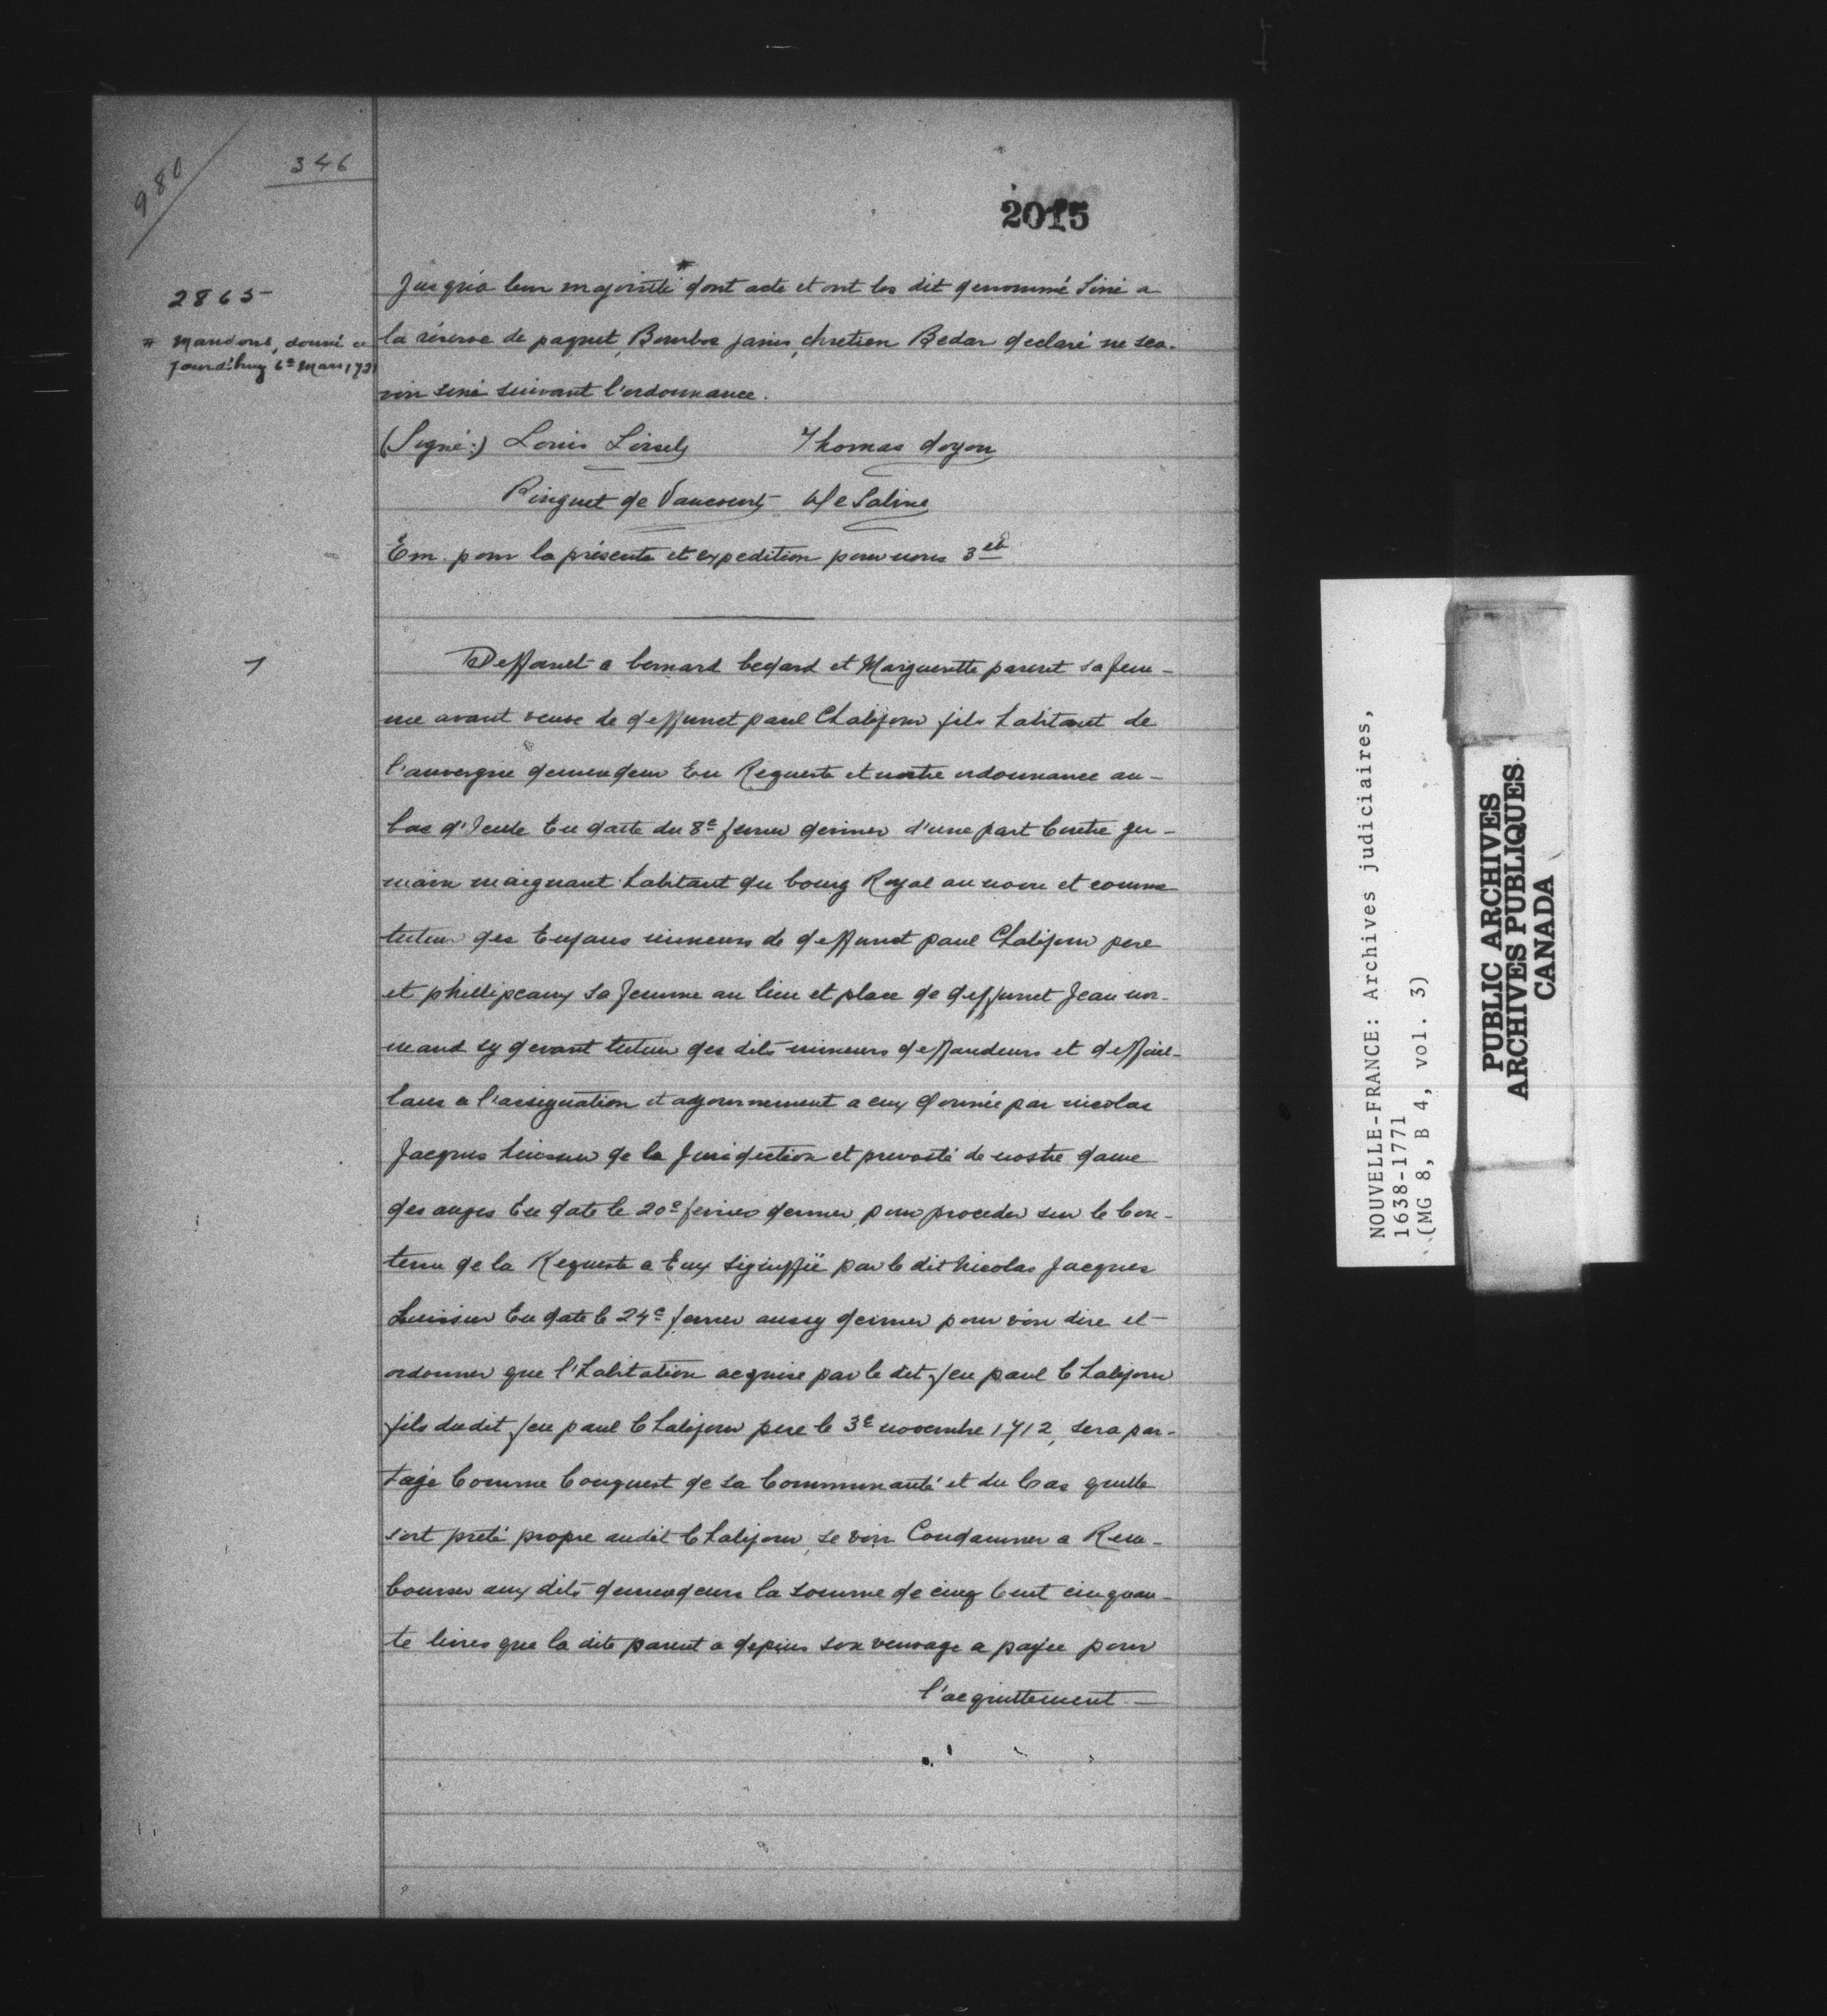 980
346
2015
2865
# mandons, donné ce
jourd'huy 6e mars 1721
Jusqu'a leur majorité # dont acte et ont les dit denommé siné a
la réserve de paquet, Bourbon janis, chretien Bedar declaré ne sca-
voir siné suivant l'ordonnance.
(Signé:) Louis Liesels Thomas doyon
Ringuet de Vaucourt De Saline
Em. pour la présente et expedition pour nous 3 lb
1
Deffaut a bernard bedard et Margueritte parent sa fem-
me avant veuve de deffunct paul Chalifour fils habitant de
l'auvergne demendeur En Requeste et nostre ordonnance au-
bas d'Icelle En datte du 8e fevrier dernier d'une part Contre ger-
main maignant habitant du bourg Royal au nom et comme
tuteur des Enfans mineurs de deffunct paul Chalifour pere
et phillipeaux sa femme au lieu et place de deffunct Jean nor-
mand cy devant tuteur des dits mineurs deffandeurs et deffail-
lans a l'assignation et ajournement a eux donnée par nicolas
Jacques huissier de la Juridiction et prevosté de nostre dame
des anges En date le 20e fevrier dernier, pour proceder sur le Con-
tenu de la Requeste a Eux signiffié par le dit Nicolas Jacques
huissier En date le 24e fevrier aussy dernier pour voir dire et
ordonner que l'habitation acquise par le dit feu paul Chalifour
fils dudit feu paul Chalifour pere le 3e novembre 1712, sera par-
tagé Comme Conquest de sa Communauté et du Cas quelle
soit preté propre audit Chalifour, se voir Condamner a Rem-
bourser aux dits demendeurs la somme de cinq Cent cinquan-
te livres que la dite parent a depuis son veuvage a payée pour
l'acquittement -
NOUVELLE-FRANCE: Archives judiciaires,
1638-1771
(MG 8, B 4, vol. 3)
PUBLIC ARCHIVES
ARCHIVES PUBLIQUES
CANADA